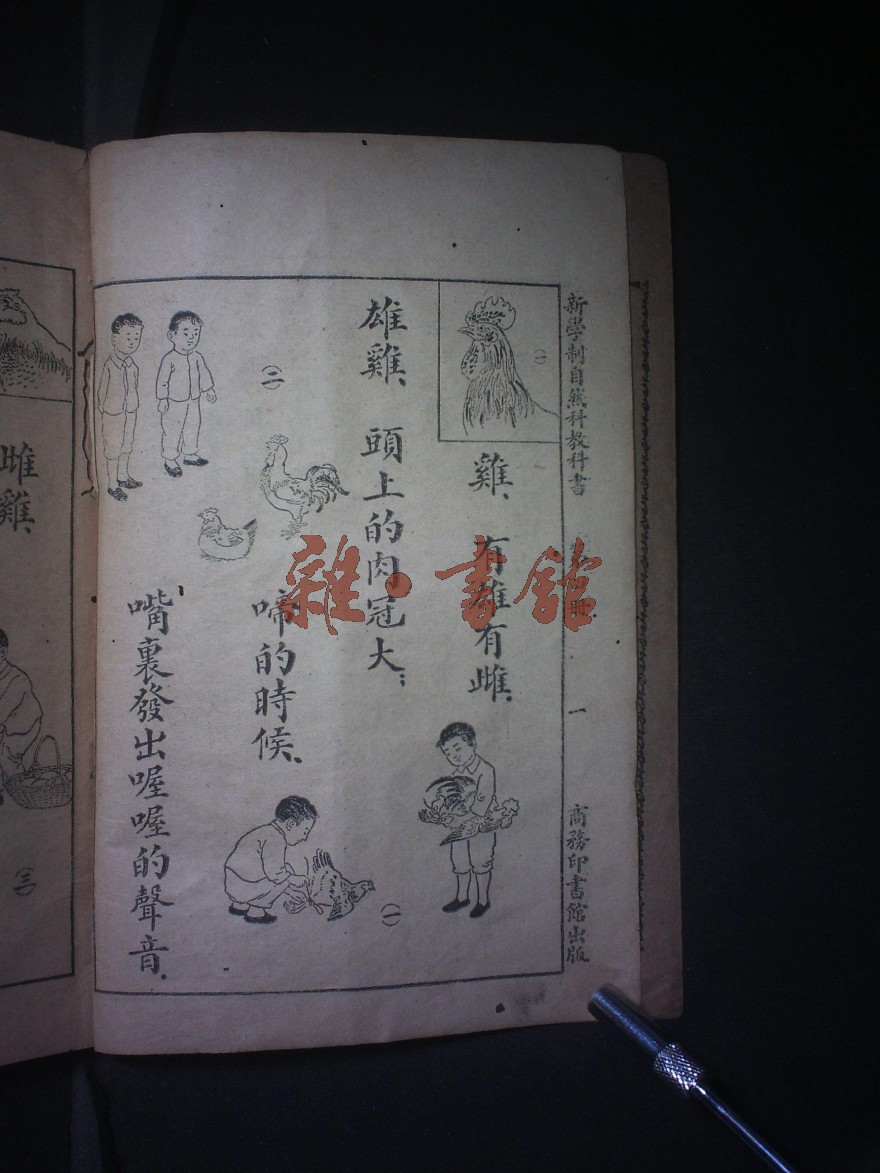 新學制自然科教科書
一
商務印書館出版
(一)
雞、有雄有雌.
雄雞、頭上的肉冠大;
(一)
(二)
啼的時候、
嘴裏發出喔喔的聲音.
雌雞、
(三)
雜·書館